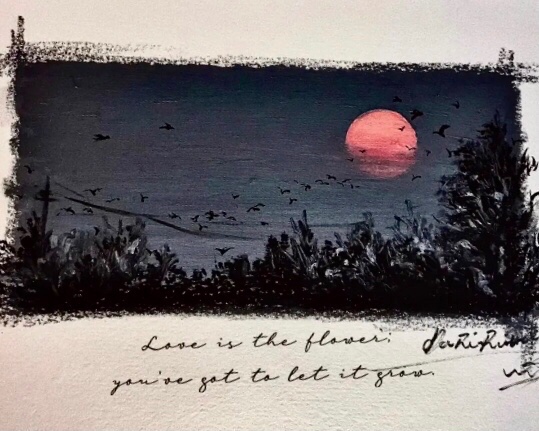 Love is the flower.
you've got to let it grow.